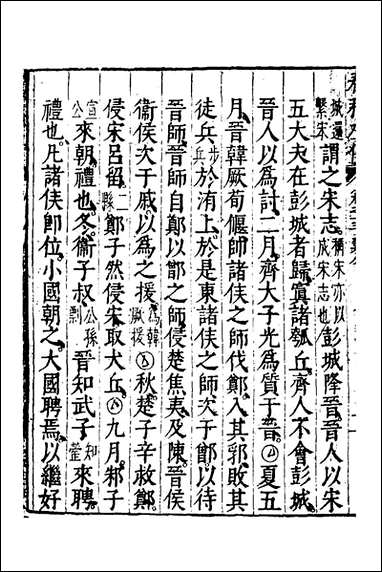 城還繫宋謂之宋志。稱宋亦以成宋志也彭城降晉。晉人以宋
五大夫在彭城者歸。寘諸瓠丘。齊人不會彭城。
晉人以為討。二月。齊大子光為質于晉。夏五
月。晉韓厥荀偃帥諸侯之師伐鄭。入其郛。敗其
徒兵步兵於洧上。於是東諸侯之師。次于鄫。以待
晉師。晉師自鄭以鄫之師。侵楚焦夷。及陳。晉侯
衛侯次于戚。以為之援。為韓厥援秋。楚子辛救鄭。
侵宋呂留。二縣鄭子然侵宋。取犬丘。九月。邾子
宣公來朝。禮也。冬。衛子叔公孫剽晉知武子知罃來聘。
禮也。凡諸侯即位。小國朝之。大國聘焉。以繼好